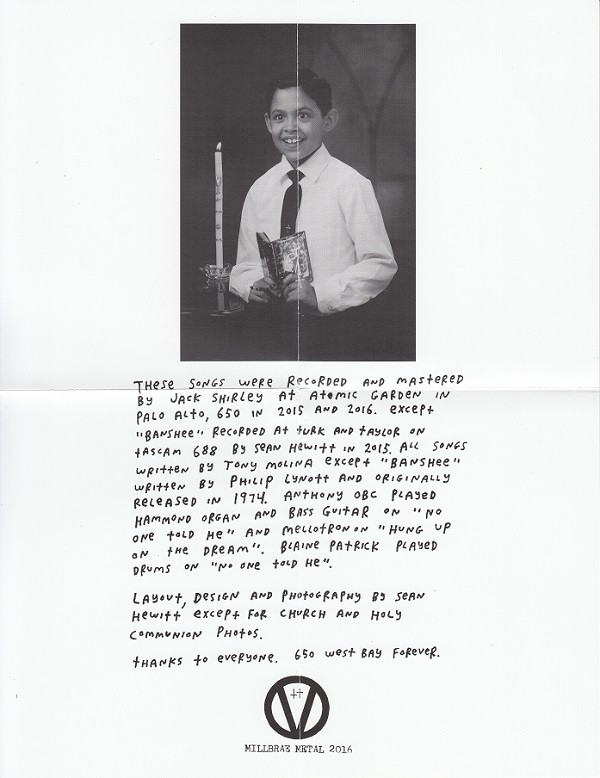 THESE SONGS WERE RECORDED AND MASTERED
BY JACK SHIRLEY AT ATOMIC GARDEN IN
PALO ALTO, 650 IN 2015 AND 2016. EXCEPT
"BANSHEE" RECORDED AT TURK AND TAYLOR ON
TASCAM 688 BY SEAN HEWITT IN 2015. ALL SONGS
WRITTEN BY TONY MOLINA EXCEPT "BANSHEE"
WRITTEN BY PHILIP LYNOTT AND ORIGINALLY
RELEASED IN 1974. ANTHONY OBC PLAYED
HAMMOND ORGAN AND BASS GUITAR ON "NO
ONE TOLD HE" AND MELLOTRON ON "HUNG UP
ON THE DREAM". BLAINE PATRICK PLAYED
DRUMS ON "NO ONE TOLD HE".
LAYOUT, DESIGN AND PHOTOGRAPHY BY SEAN
HEWITT EXCEPT FOR CHURCH AND HOLY
COMMUNION PHOTOS.
THANKS TO EVERYONE. 650 WEST BAY FOREVER.
MILLBRAE METAL 2016